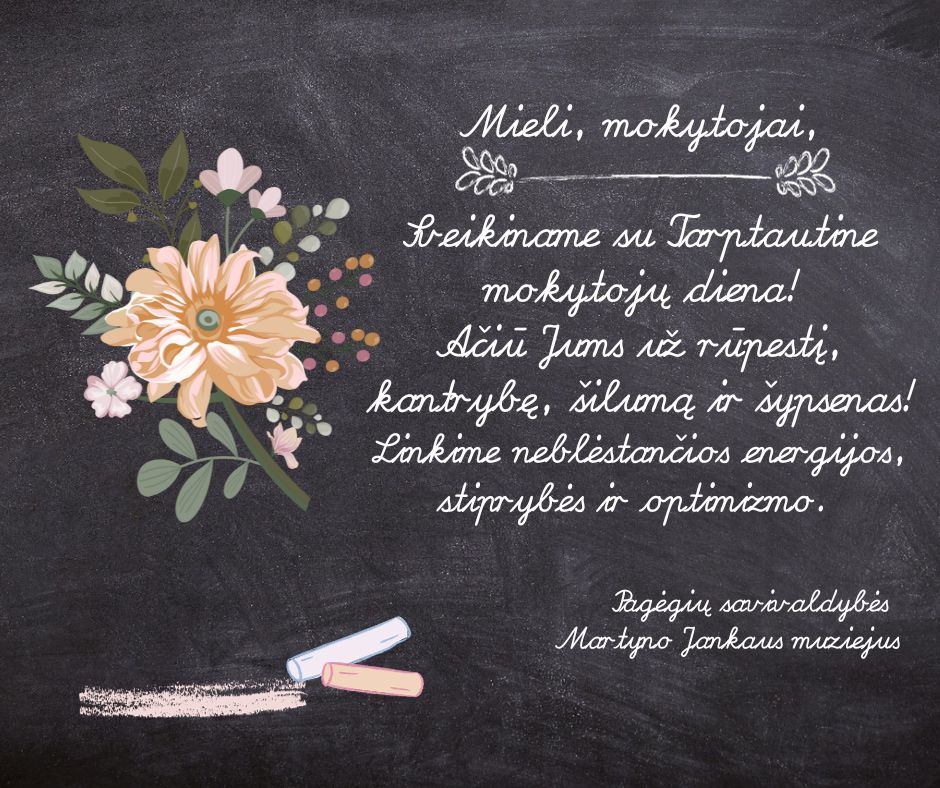 Mieli, mokytojai,
Sveikiname su Tarptautine
mokytojų diena!
Ačiū Jums už rūpestį,
kantrybę, šilumą ir šypsenas!
Linkime neblėstančios energijos,
stiprybės ir optimizmo.
Pagėgių savivaldybės
Martyno Jankaus muziejus